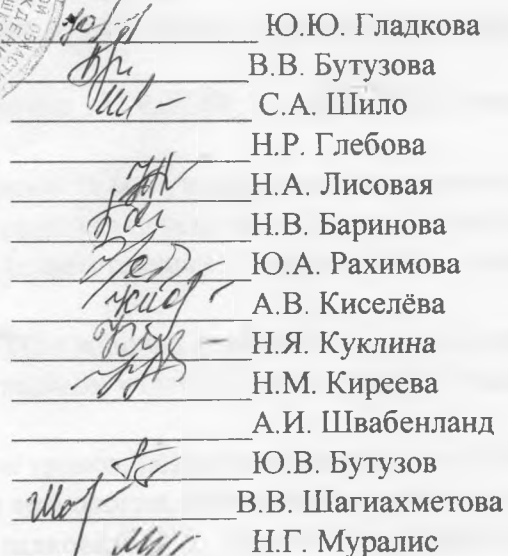 Ю.Ю. Гладкова
В.В. Бутузова
С.А. Шило
Н.Р. Глебова
Н.А. Лисовая
Н.В. Баринова
Ю.А. Рахимова
А.В. Киселёва
Н.Я. Куклина
Н.М. Киреева
А.И. Швабенланд
Ю.В. Бутузов
В.В. Шагиахметова
Н.Г. Муралис